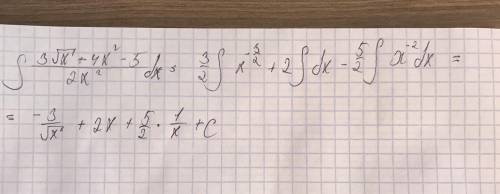 ∫ (3√x + 4x² - 5)/(2x²) dx = 3/2 ∫ x^(-3/2) + 2∫dx - 5/2 ∫ x^(-2) dx =
= -3/√x + 2x + 5/2 · 1/x + C